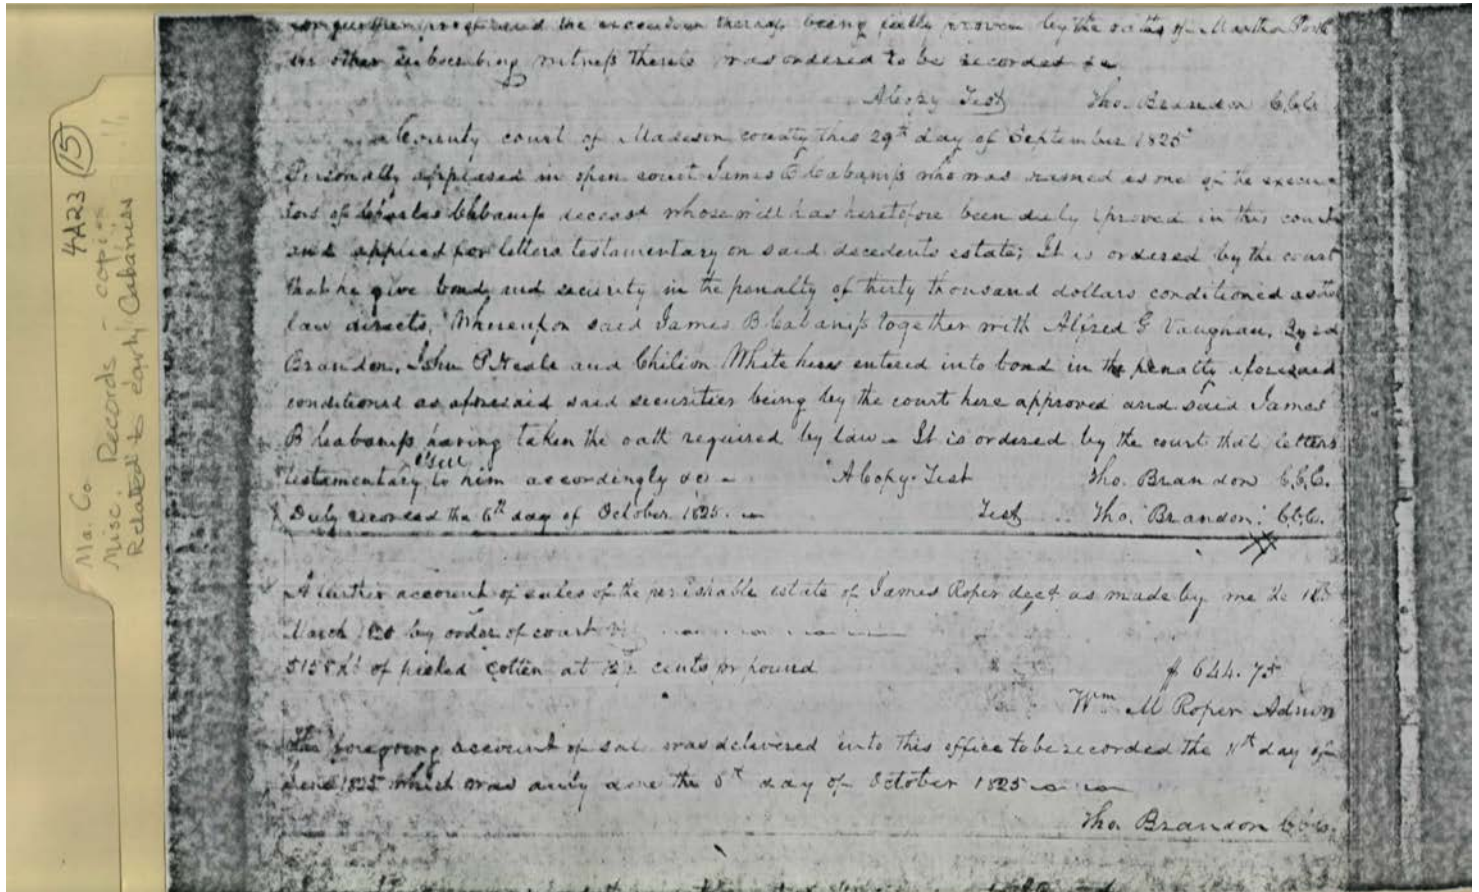 4AR3 (15)
Ma. Co.
Misc. Records - copies
Related to early Cabaniss
and the execution thereof being fully proven by the oaths of Martha
the other subscribing witness thereto was ordered to be recorded &c
A Copy Test Tho. Brandon C.C.C.
County court of Madison county this 29th day of September 1825
Personally appeared in open court James B Cabaniss who was named as one of the execu-
tors of Charles Cabaniss deceasd whose will has heretofore been duly proved in this court
and applied for letters testamentary on said decedents estate; It is ordered by the court
that he give bond and security in the penalty of thirty thousand dollars conditioned as the
law directs. Whereupon said James B Cabaniss together with Alfred G Vaughan,
Brandon, John P Neale and Chilion White here entered into bond in the penalty aforesaid
conditioned as aforesaid said securities being by the court here approved and said James
B Cabaniss having taken the oath required by law - It is ordered by the court that letters
testamentary issue to him accordingly &c - A Copy Test Tho. Brandon C.C.C.
Duly recorded the 6th day of October 1825. Test Tho. Brandon C.C.C.
A further account of sales of the perishable estate of James Roper decd as made by me the
March by order of court
5158 lbs of picked cotton at 12½ cents pr pound $ 644.75
Wm M Roper Admr
The foregoing account of sale was delivered into this office to be recorded the 11th day of
1825 which was duly done the 6th day of October 1825
Tho. Brandon